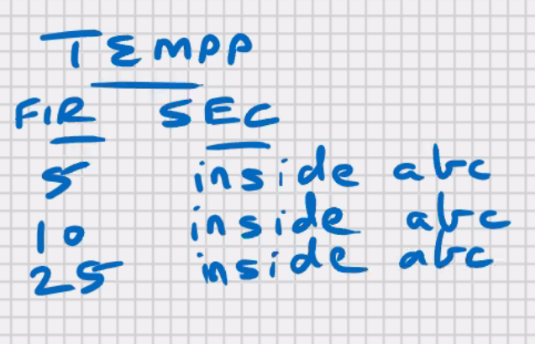 TEMPP
FIR SEC
5 inside abc
10 inside abc
25 inside abc